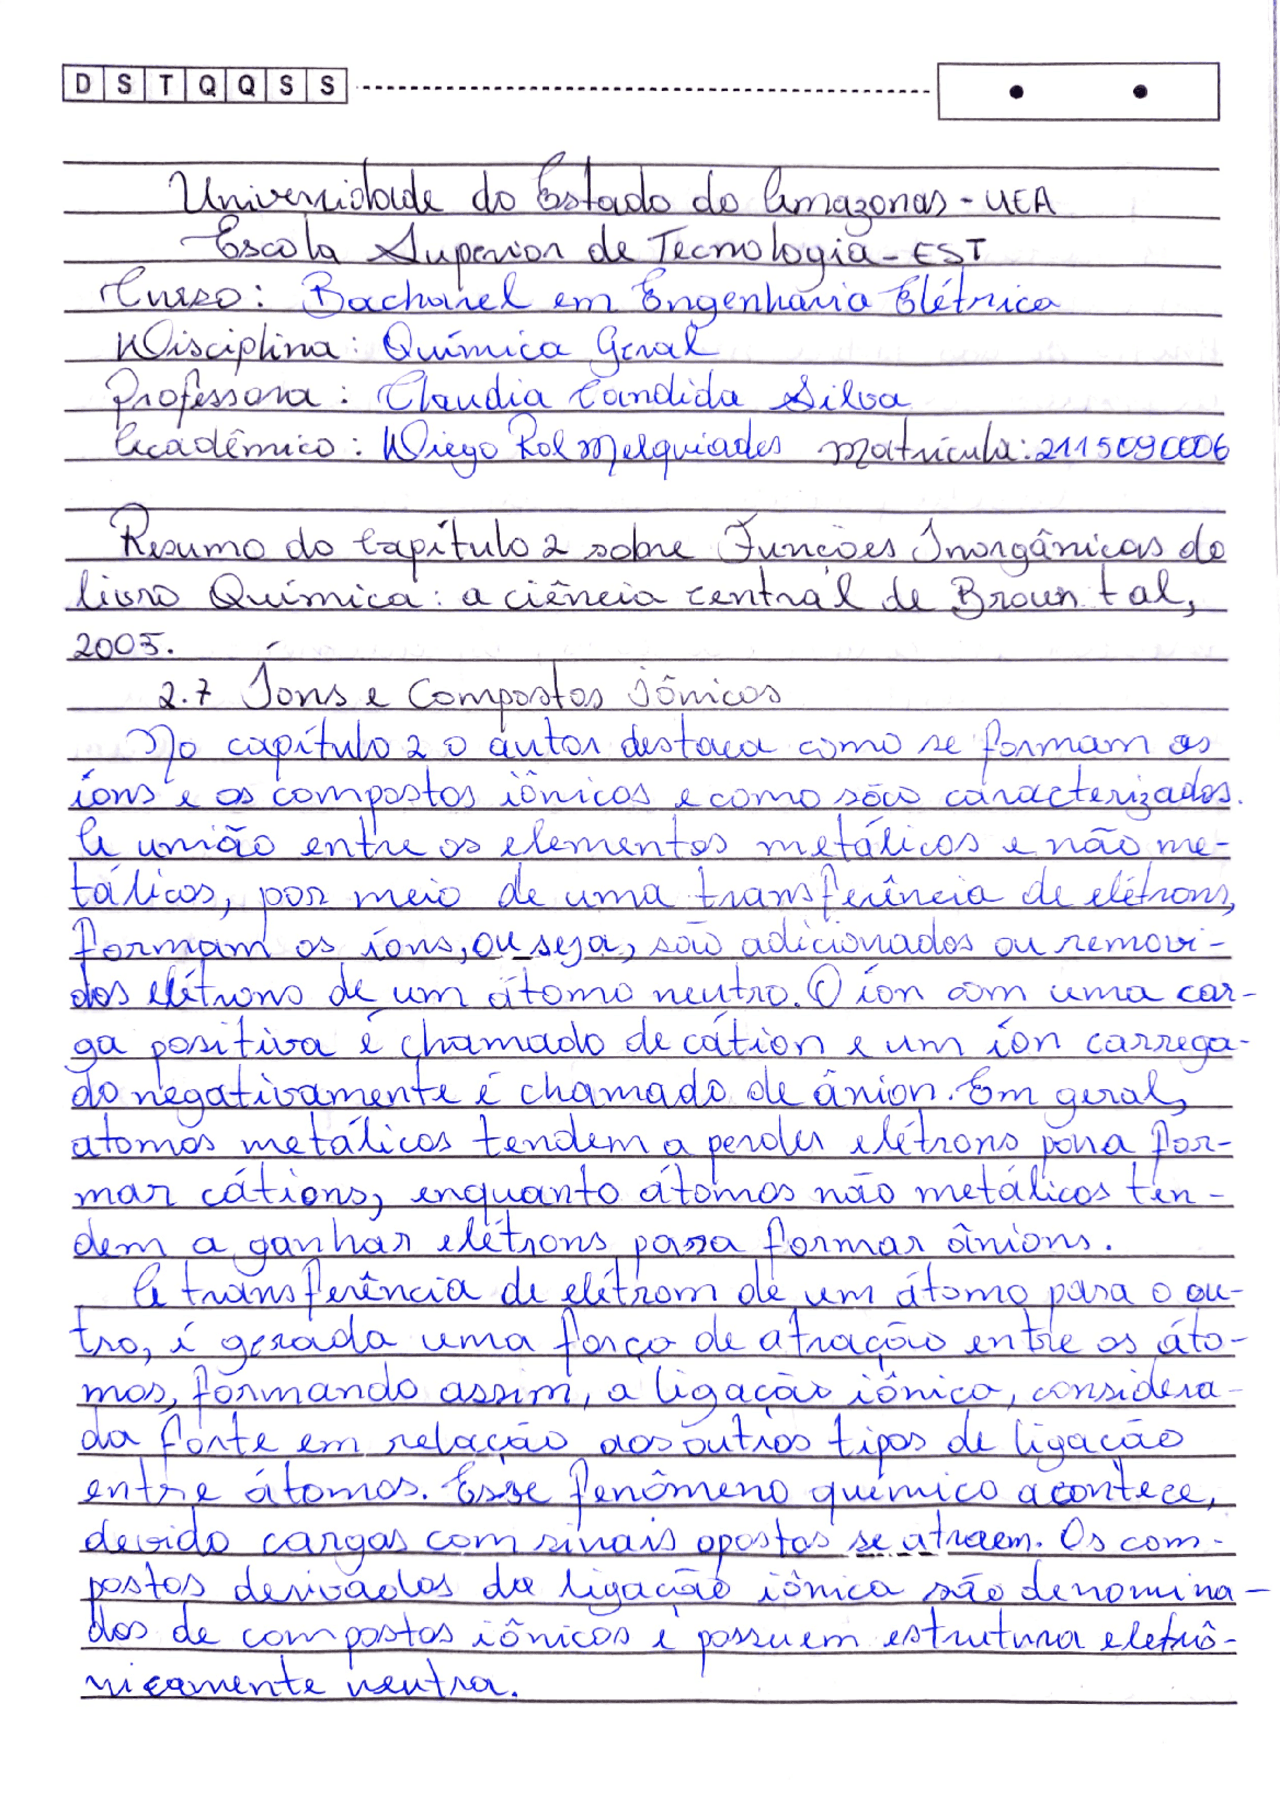 D S T Q Q S S
Universidade do Estado do Amazonas - UEA
Escola Superior de Tecnologia - EST
Curso: Bacharel em Engenharia Elétrica
Disciplina: Química Geral
Professora: Claudia Candida Silva
Acadêmico: Diego Rol Melquiades Matrícula: 2115090006
Resumo do Capítulo 2 sobre Funcões Inorgânicas do
livro Química: a ciência central de Broun t al,
2005.
2.7 Íons e Compostos Iônicos
No capítulo 2 o autor destaca como se formam os
íons e os compostos iônicos e como são caracterizados.
A união entre os elementos metálicos e não me-
tálicos, por meio de uma transferência de elétrons,
formam os íons, ou seja, são adicionados ou removi-
dos elétrons de um átomo neutro. O íon com uma car-
ga positiva é chamado de cátion e um íon carrega-
do negativamente é chamado de ânion. Em geral,
atomos metálicos tendem a perder elétrons para for-
mar cátions, enquanto átomos não metálicos ten-
dem a ganhar elétrons para formar ânions.
A transferência de elétrom de um átomo para o ou-
tro, é gerada uma força de atração entre os áto-
mos, formando assim, a ligação iônica, considera-
da forte em relação aos outros tipos de ligação
entre átomos. Esse fenômeno químico acontece,
devido cargas com sinais opostos se atraem. Os com-
postos derivados da ligação iônica são denomina-
dos de compostos iônicos e possuem estrutura eletrô-
nicamente neutra.